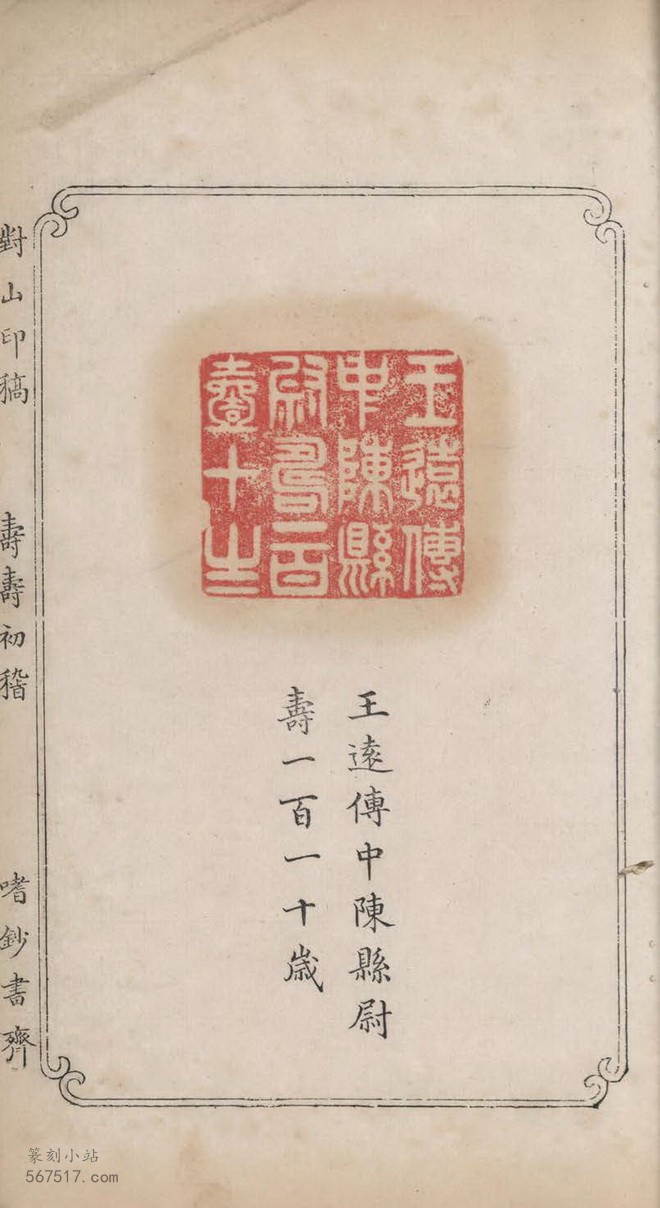 王遠傳
中陳縣
尉壽一百
壹十歲
王遠傳中陳縣尉
壽一百一十歳
對山印稿
壽壽初稽
嗜鈔書齊
篆刻小站
567517.com